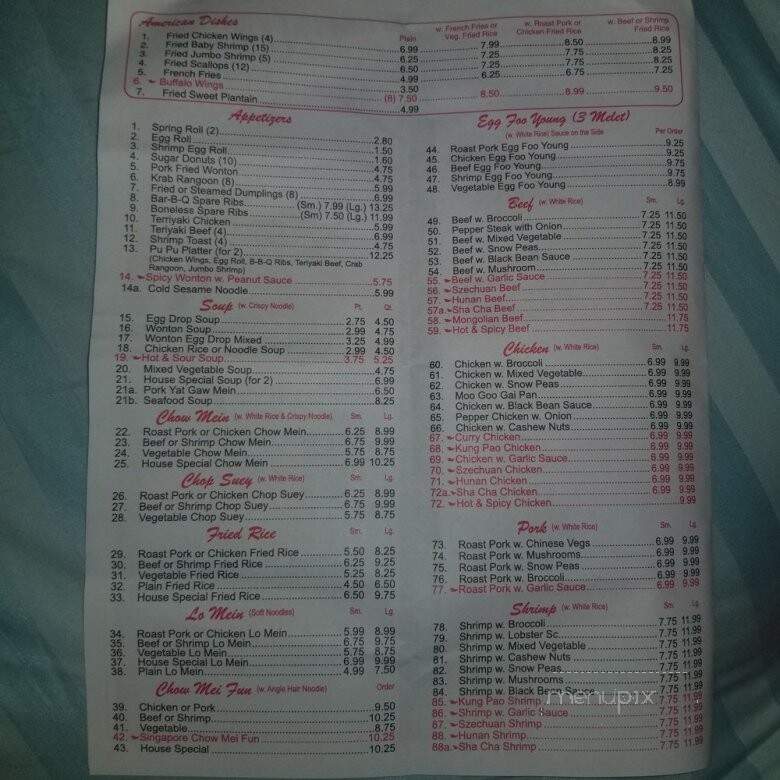 American Dishes
Plain
w. French Fries or Veg. Fried Rice
w. Roast Pork or Chicken Fried Rice
w. Beef or Shrimp Fried Rice
1. Fried Chicken Wings (4) 6.99 7.99 8.50 8.99
2. Fried Baby Shrimp (15) 6.25 7.25 7.75 8.25
3. Fried Jumbo Shrimp (5) 6.50 7.25 7.75 8.25
4. Fried Scallops (12) 4.99 6.25 6.75 7.25
5. French Fries 3.50
6. Buffalo Wings (8) 7.50 8.50 8.99 9.50
7. Fried Sweet Plantain 4.99
Appetizers
1. Spring Roll (2) 2.80
2. Egg Roll 1.50
3. Shrimp Egg Roll 1.60
4. Sugar Donuts (10) 4.75
5. Pork Fried Wonton 4.75
6. Krab Rangoon (8) 5.99
7. Fried or Steamed Dumplings (8) 6.99
8. Bar-B-Q Spare Ribs (Sm.) 7.99 (Lg.) 13.25
9. Boneless Spare Ribs (Sm) 7.50 (Lg.) 11.99
10. Terriyaki Chicken 5.99
11. Teriyaki Beef (4) 6.99
12. Shrimp Toast (4) 4.75
13. Pu Pu Platter (for 2) 12.25
(Chicken Wings, Egg Roll, B-B-Q Ribs, Teriyaki Beef, Crab
Rangoon, Jumbo Shrimp)
14. Spicy Wonton w. Peanut Sauce 5.75
14a. Cold Sesame Noodle 5.99
Soup (w. Crispy Noodle) Pt. Qt.
15. Egg Drop Soup 2.75 4.50
16. Wonton Soup 2.99 4.75
17. Wonton Egg Drop Mixed 3.25 4.99
18. Chicken Rice or Noodle Soup 2.99 4.50
19. Hot & Sour Soup 3.75 5.25
20. Mixed Vegetable Soup 4.75
21. House Special Soup (for 2) 6.99
21a. Pork Yat Gaw Mein 6.50
21b. Seafood Soup 8.25
Chow Mein (w. White Rice & Crispy Noodle) Sm. Lg.
22. Roast Pork or Chicken Chow Mein 6.25 8.99
23. Beef or Shrimp Chow Mein 6.75 9.99
24. Vegetable Chow Mein 5.75 8.75
25. House Special Chow Mein 6.99 10.25
Chop Suey (w. White Rice) Sm. Lg.
26. Roast Pork or Chicken Chop Suey 6.25 8.99
27. Beef or Shrimp Chop Suey 6.75 9.99
28. Vegetable Chop Suey 5.75 8.75
Fried Rice Sm. Lg.
29. Roast Pork or Chicken Fried Rice 5.50 8.25
30. Beef or Shrimp Fried Rice 6.25 9.25
31. Vegetable Fried Rice 5.25 8.25
32. Plain Fried Rice 4.50 6.50
33. House Special Fried Rice 6.50 9.75
Lo Mein (Soft Noodles) Sm. Lg.
34. Roast Pork or Chicken Lo Mein 5.99 8.99
35. Beef or Shrimp Lo Mein 6.75 9.75
36. Vegetable Lo Mein 5.75 8.75
37. House Special Lo Mein 6.99 9.99
38. Plain Lo Mein 4.99 7.50
Chow Mei Fun (w. Angle Hair Noodle) Order
39. Chicken or Pork 9.50
40. Beef or Shrimp 10.25
41. Vegetable 8.75
42. Singapore Chow Mei Fun 10.25
43. House Special 10.25
Egg Foo Young (3 Melet)
(w. White Rice) Sauce on the Side Per Order
44. Roast Pork Egg Foo Young 9.25
45. Chicken Egg Foo Young 9.25
46. Beef Egg Foo Young 9.75
47. Shrimp Egg Foo Young 9.75
48. Vegetable Egg Foo Young 8.99
Beef (w. White Rice) Sm. Lg.
49. Beef w. Broccoli 7.25 11.50
50. Pepper Steak with Onion 7.25 11.50
51. Beef w. Mixed Vegetable 7.25 11.50
52. Beef w. Snow Peas 7.25 11.50
53. Beef w. Black Bean Sauce 7.25 11.50
54. Beef w. Mushroom 7.25 11.50
55. Beef w. Garlic Sauce 7.25 11.50
56. Szechuan Beef 7.25 11.50
57. Hunan Beef 7.25 11.50
57a. Sha Cha Beef 7.25 11.50
58. Mongolian Beef 11.75
59. Hot & Spicy Beef 11.75
Chicken (w. White Rice) Sm. Lg.
60. Chicken w. Broccoli 6.99 9.99
61. Chicken w. Mixed Vegetable 6.99 9.99
62. Chicken w. Snow Peas 6.99 9.99
63. Moo Goo Gai Pan 6.99 9.99
64. Chicken w. Black Bean Sauce 6.99 9.99
65. Pepper Chicken w. Onion 6.99 9.99
66. Chicken w. Cashew Nuts 6.99 9.99
67. Curry Chicken 6.99 9.99
68. Kung Pao Chicken 6.99 9.99
69. Chicken w. Garlic Sauce 6.99 9.99
70. Szechuan Chicken 6.99 9.99
71. Hunan Chicken 6.99 9.99
72a. Sha Cha Chicken 6.99 9.99
72. Hot & Spicy Chicken 9.99
Pork (w. White Rice) Sm. Lg.
73. Roast Pork w. Chinese Vegs 6.99 9.99
74. Roast Pork w. Mushrooms 6.99 9.99
75. Roast Pork w. Snow Peas 6.99 9.99
76. Roast Pork w. Broccoli 6.99 9.99
77. Roast Pork w. Garlic Sauce 6.99 9.99
Shrimp (w. White Rice) Sm. Lg.
78. Shrimp w. Broccoli 7.75 11.99
79. Shrimp w. Lobster Sc. 7.75 11.99
80. Shrimp w. Mixed Vegetable 7.75 11.99
81. Shrimp w. Cashew Nuts 7.75 11.99
82. Shrimp w. Snow Peas 7.75 11.99
83. Shrimp w. Mushrooms 7.75 11.99
84. Shrimp w. Black Bean Sauce 7.75 11.99
85. Kung Pao Shrimp 7.75 11.99
86. Shrimp w. Garlic Sauce 7.75 11.99
87. Szechuan Shrimp 7.75 11.99
88. Hunan Shrimp 7.75 11.99
88a. Sha Cha Shrimp 7.75 11.99
menupix